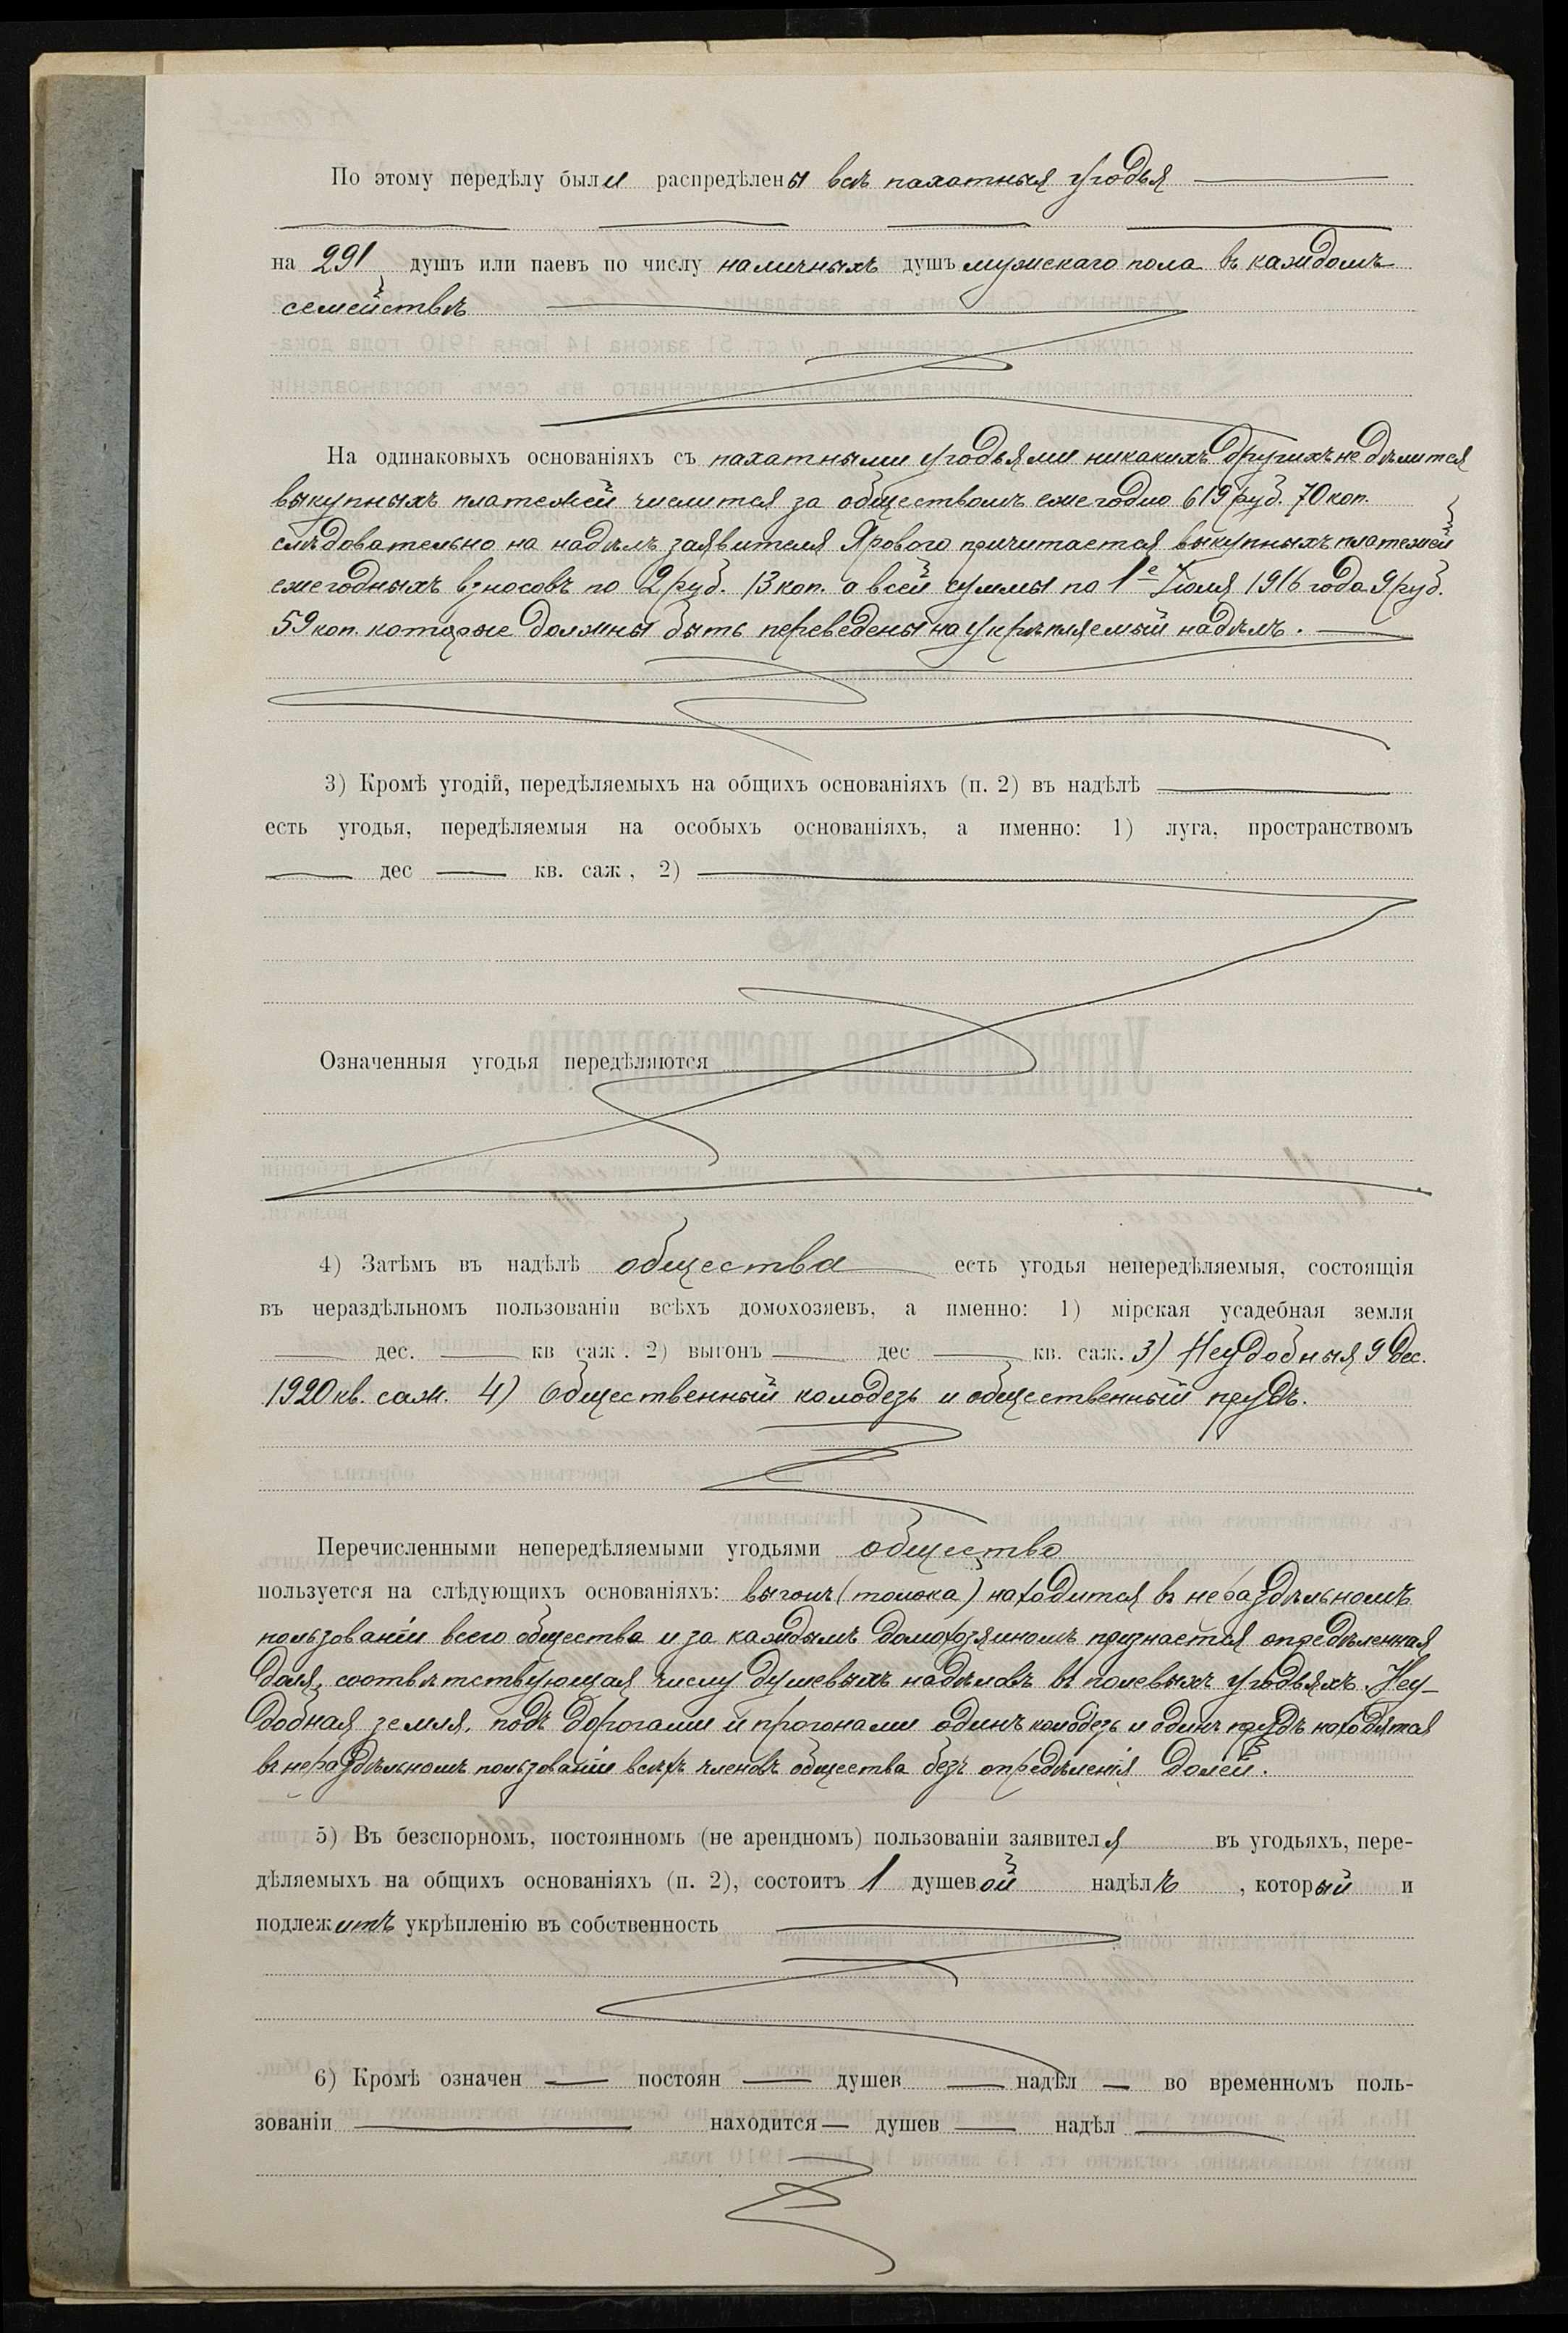 По этому передѣлу были распредѣлены всѣ пахатныя угодья
на 291 душъ или паевъ по числу наличныхъ душъ мужскаго пола въ каждомъ
семействѣ
На одинаковыхъ основаніяхъ съ пахатными угодьями никакихъ другихъ не дѣлится
выкупныхъ платежей числится за обществомъ ежегодно 619 руб. 70 коп.
слѣдовательно на надѣлъ заявителя Ярового причитается выкупныхъ платежей
ежегодныхъ взносовъ по 2 руб. 13 коп. а всей суммы по 1е Іюля 1916 года 9 руб.
59 коп. которые должны быть переведены на укрѣпляемый надѣлъ.
3) Кромѣ угодій, передѣляемыхъ на общихъ основаніяхъ (п. 2) въ надѣлѣ
есть угодья, передѣляемыя на особыхъ основаніяхъ, а именно: 1) луга, пространствомъ
дес кв. саж, 2)
Означенныя угодья передѣляются
4) Затѣмъ въ надѣлѣ общества есть угодья непередѣляемыя, состоящія
въ нераздѣльномъ пользованіи всѣхъ домохозяевъ, а именно: 1) мірская усадебная земля
дес. кв саж. 2) выгонъ дес кв. саж. 3) Неудобныя 9 дес.
1920 кв. саж. 4) Общественный колодезь и общественный прудъ.
Перечисленными непередѣляемыми угодьями общество
пользуется на слѣдующихъ основаніяхъ: выгонъ (толока) находится въ нераздѣльномъ
пользованіи всего общества и за каждымъ домохозяиномъ признается опредѣленная
доля, соотвѣтствующая числу душевыхъ надѣловъ въ полевыхъ угодьяхъ. Неу-
добная земля, подъ дорогами и прогонами одинъ колодезь и одинъ прудъ находятся
въ нераздѣльномъ пользованіи всѣхъ членовъ общества безъ опредѣленія долей.
5) Въ безспорномъ, постоянномъ (не арендномъ) пользованіи заявителя въ угодьяхъ, пере-
дѣляемыхъ на общихъ основаніяхъ (п. 2), состоитъ 1 душевой надѣлъ, который и
подлежитъ укрѣпленію въ собственность
6) Кромѣ означен постоян душев надѣл во временномъ поль-
зованіи находится душев надѣл